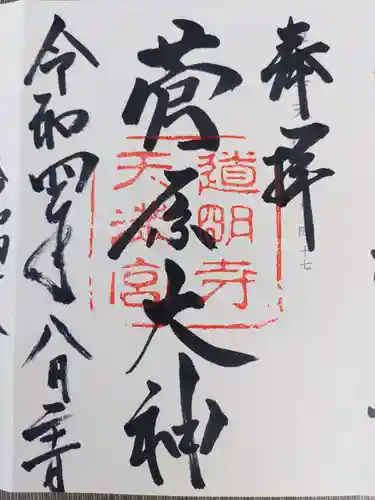 奉拝
菅原大神
道明寺
天満宮
令和四年八月二十二日